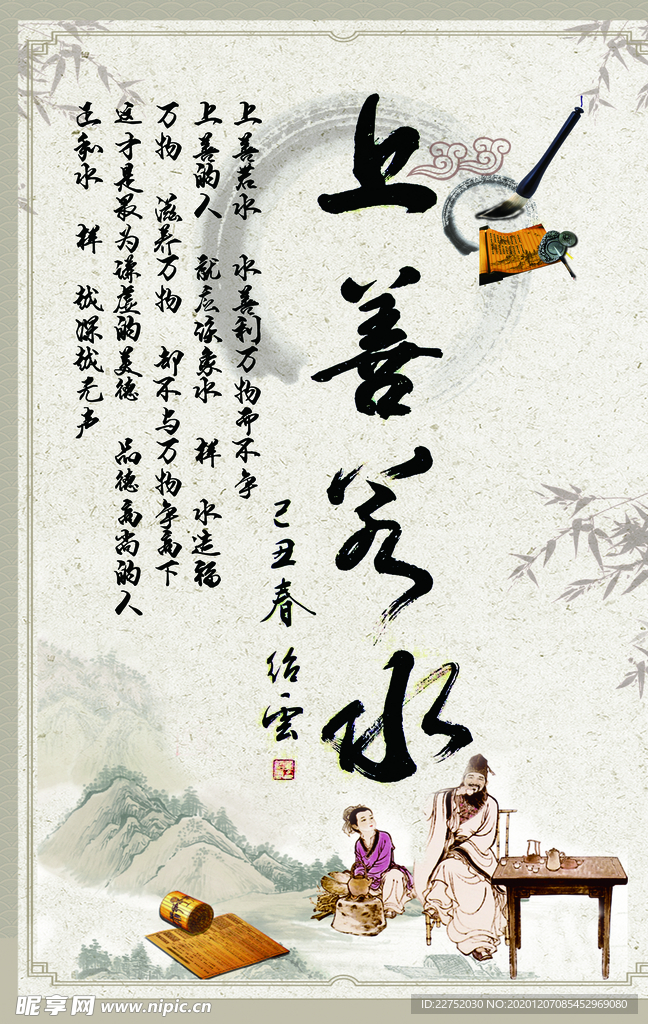 上善若水
己丑春 绍雲
上善若水 水善利万物而不争
上善的人 就应该象水 样 水造福
万物 滋养万物 却不与万物争高下
这才是最为谦虚的美德 品德高尚的人
也和水 样 越深越无声
昵享网 www.nipic.cn
ID:22752030 NO:20201207085452969080